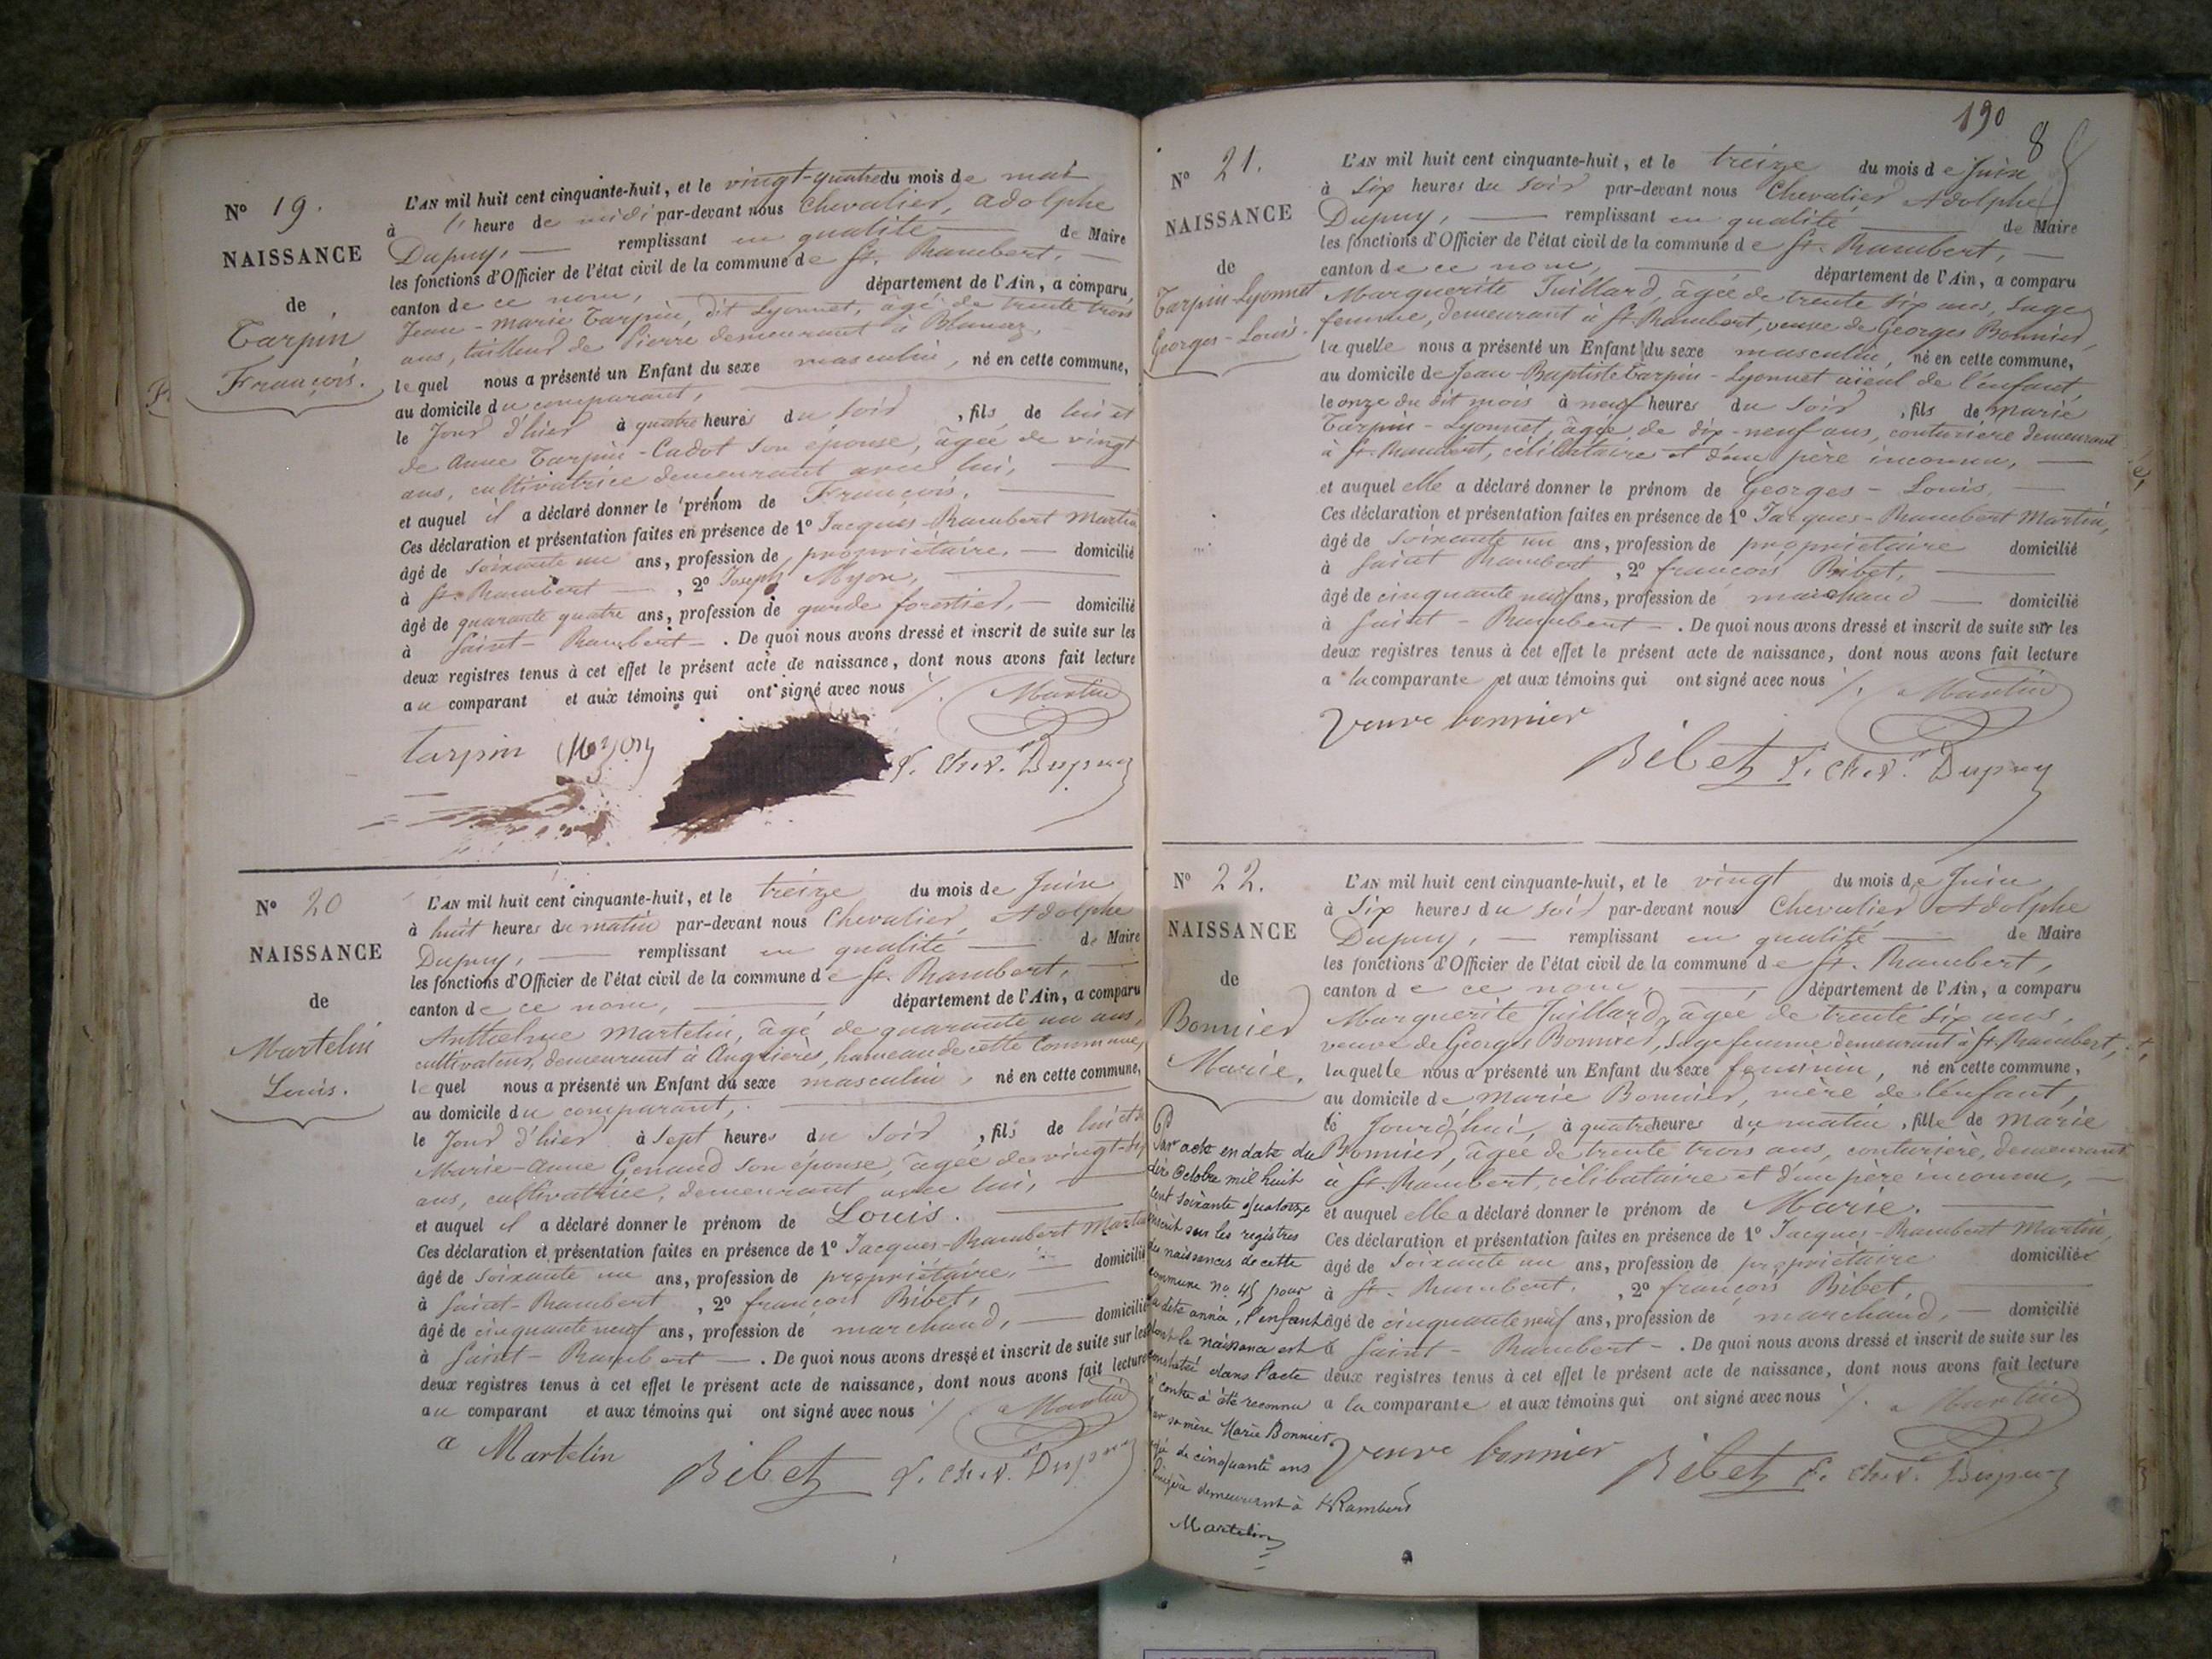 N° 19.
NAISSANCE
de
Tarpin
François.
L'AN mil huit cent cinquante-huit, et le vingt-quatre du mois de mai
à l' heure de midi par-devant nous Chevalier, Adolphe
Dupuy, remplissant en qualité de Maire
les fonctions d'Officier de l'état civil de la commune de St. Rambert,
canton de ce nom, département de l'Ain, a comparu
Jean-Marie Tarpin, dit Lyonnet, âgé de trente trois
ans, tailleur de Pierre demeurant à Blanaz,
lequel nous a présenté un Enfant du sexe masculin, né en cette commune,
au domicile du comparant,
le Jour d'hier à quatre heures du soir, fils de lui et
de Anne Tarpin-Cadot son épouse, âgée de vingt
ans, cultivatrice demeurant avec lui,
et auquel il a déclaré donner le prénom de François.
Ces déclaration et présentation faites en présence de 1° Jacques-Rambert Martin
âgé de soixante un ans, profession de propriétaire, domicilié
à St. Rambert, 2° Joseph Myon,
âgé de quarante quatre ans, profession de garde forestier, domicilié
à Saint-Rambert. De quoi nous avons dressé et inscrit de suite sur les
deux registres tenus à cet effet le présent acte de naissance, dont nous avons fait lecture
au comparant et aux témoins qui ont signé avec nous /.
Martin
tarpin Myon
Chev. Dupuy
N° 20
NAISSANCE
de
Martelin
Louis.
L'AN mil huit cent cinquante-huit, et le treize du mois de Juin
à huit heures du matin par-devant nous Chevalier, Adolphe
Dupuy, remplissant en qualité de Maire
les fonctions d'Officier de l'état civil de la commune de St. Rambert,
canton de ce nom, département de l'Ain, a comparu
Anthelme Martelin, âgé de quarante un ans,
cultivateur, demeurant à Angrières, hameau de cette Commune,
lequel nous a présenté un Enfant du sexe masculin, né en cette commune,
au domicile du comparant,
le Jour d'hier à sept heures du soir, fils de lui et de
Marie-Anne Genaud son épouse, âgée de
ans, cultivatrice, demeurant avec lui,
et auquel il a déclaré donner le prénom de Louis.
Ces déclaration et présentation faites en présence de 1° Jacques-Rambert Martin
âgé de soixante un ans, profession de propriétaire, domicilié
à Saint-Rambert, 2° françois Bibet,
âgé de cinquante neuf ans, profession de marchand, domicilié
à Saint-Rambert. De quoi nous avons dressé et inscrit de suite sur les
deux registres tenus à cet effet le présent acte de naissance, dont nous avons fait lecture
au comparant et aux témoins qui ont signé avec nous /.
Martin
a Martelin Bibet Chev. Dupuy
190
8
N° 21.
NAISSANCE
de
Tarpin-Lyonnet
Georges-Louis.
L'AN mil huit cent cinquante-huit, et le treize du mois de Juin
à Six heures du soir par-devant nous Chevalier Adolphe
Dupuy, remplissant en qualité de Maire
les fonctions d'Officier de l'état civil de la commune de St. Rambert,
canton de ce nom, département de l'Ain, a comparu
Marguerite Juillard, âgée de trente six ans, sage
femme, demeurant à St. Rambert, veuve de Georges Bonnier,
laquelle nous a présenté un Enfant du sexe masculin, né en cette commune,
au domicile de Jean-Baptiste Tarpin-Lyonnet aïeul de l'enfant,
le onze du dit mois à neuf heures du soir, fils de Marie
Tarpin-Lyonnet, âgée de dix-neuf ans, couturière demeurant
à St. Rambert, célibataire et d'un père inconnu,
et auquel elle a déclaré donner le prénom de Georges-Louis,
Ces déclaration et présentation faites en présence de 1° Jacques-Rambert Martin,
âgé de soixante un ans, profession de propriétaire domicilié
à Saint Rambert, 2° françois Bibet,
âgé de cinquante neuf ans, profession de marchand domicilié
à Saint-Rambert. De quoi nous avons dressé et inscrit de suite sur les
deux registres tenus à cet effet le présent acte de naissance, dont nous avons fait lecture
a la comparante et aux témoins qui ont signé avec nous /.
Martin
veuve bonnier
Bibet Chev. Dupuy
N° 22.
NAISSANCE
de
Bonnier
Marie.
L'AN mil huit cent cinquante-huit, et le vingt du mois de Juin
à Six heures du soir par-devant nous Chevalier Adolphe
Dupuy, remplissant en qualité de Maire
les fonctions d'Officier de l'état civil de la commune de St. Rambert,
canton de ce nom, département de l'Ain, a comparu
Marguerite Juillard, âgée de trente six ans,
veuve de Georges Bonnier, sage femme demeurant à St. Rambert,
laquelle nous a présenté un Enfant du sexe féminin, né en cette commune,
au domicile de Marie Bonnier, mère de l'enfant,
Jourd'hui, à quatre heures du matin, fille de Marie
Bonnier, âgée de trente trois ans, couturière, demeurant
à St. Rambert, célibataire et d'un père inconnu,
et auquel elle a déclaré donner le prénom de Marie.
Ces déclaration et présentation faites en présence de 1° Jacques-Rambert Martin,
âgé de soixante un ans, profession de propriétaire domicilié
à St. Rambert, 2° françois Bibet,
âgé de cinquante neuf ans, profession de marchand, domicilié
à Saint-Rambert. De quoi nous avons dressé et inscrit de suite sur les
deux registres tenus à cet effet le présent acte de naissance, dont nous avons fait lecture
a la comparante et aux témoins qui ont signé avec nous /.
Martin
veuve bonnier Bibet Chev. Dupuy
Par acte en date du
Octobre mil huit
cent soixante quatorze
inscrit sur les registres
des naissances de cette
commune no. 45 pour
la dite année, l'enfant
dont la naissance est
constatée dans l'acte
ci contre à été reconnu
par sa mère Marie Bonnier
âgée de cinquante ans
demeurant à St Rambert
Martelin